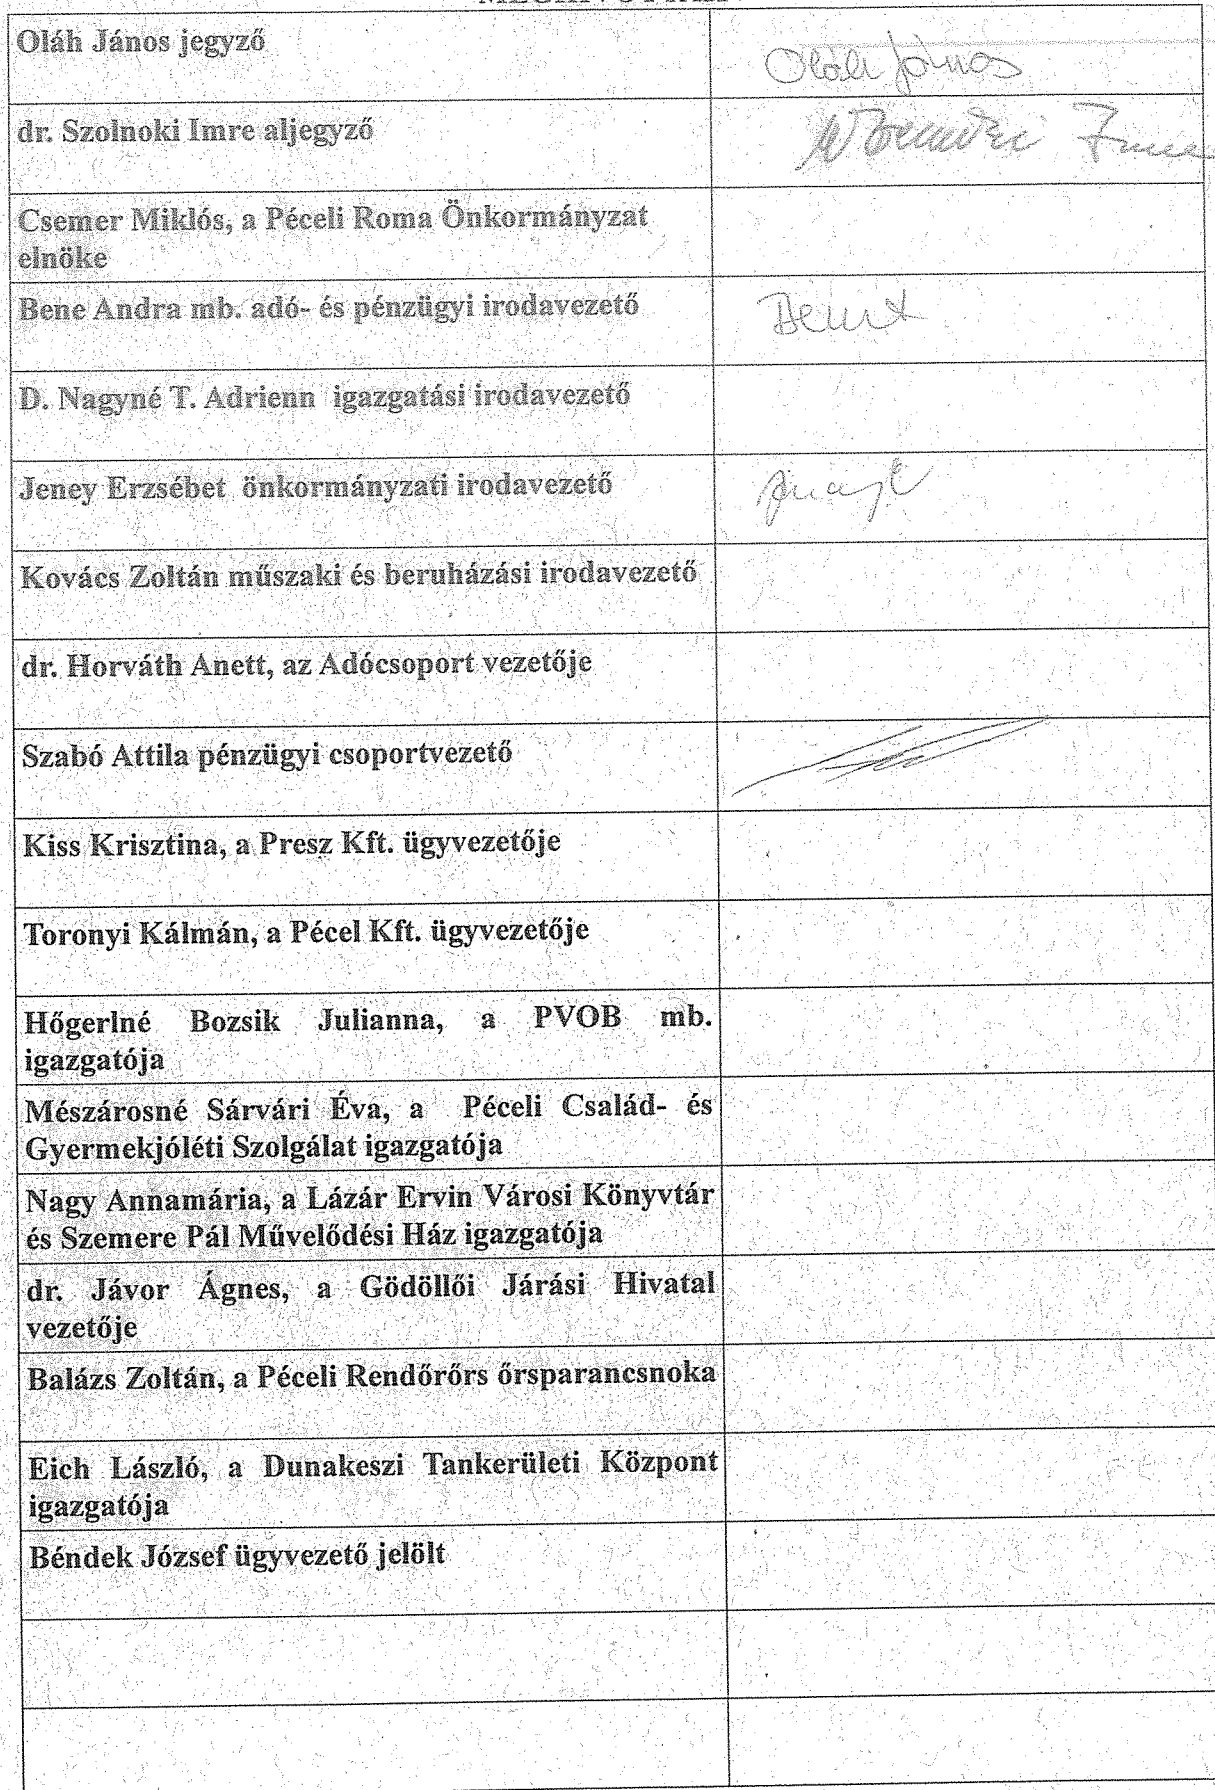 Oláh János jegyző
Oláh János
dr. Szolnoki Imre aljegyző
Imre
Csemer Miklós, a Péceli Roma Önkormányzat
elnöke
Bene Andra mb. adó- és pénzügyi irodavezető
D. Nagyné T. Adrienn igazgatási irodavezető
Jeney Erzsébet önkormányzati irodavezető
Kovács Zoltán műszaki és beruházási irodavezető
dr. Horváth Anett, az Adócsoport vezetője
Szabó Attila pénzügyi csoportvezető
Kiss Krisztina, a Presz Kft. ügyvezetője
Toronyi Kálmán, a Pécel Kft. ügyvezetője
Hőgerlné Bozsik Julianna, a PVOB mb.
igazgatója
Mészárosné Sárvári Éva, a Péceli Család- és
Gyermekjóléti Szolgálat igazgatója
Nagy Annamária, a Lázár Ervin Városi Könyvtár
és Szemere Pál Művelődési Ház igazgatója
dr. Jávor Ágnes, a Gödöllői Járási Hivatal
vezetője
Balázs Zoltán, a Péceli Rendőrőrs őrsparancsnoka
Eich László, a Dunakeszi Tankerületi Központ
igazgatója
Béndek József ügyvezető jelölt